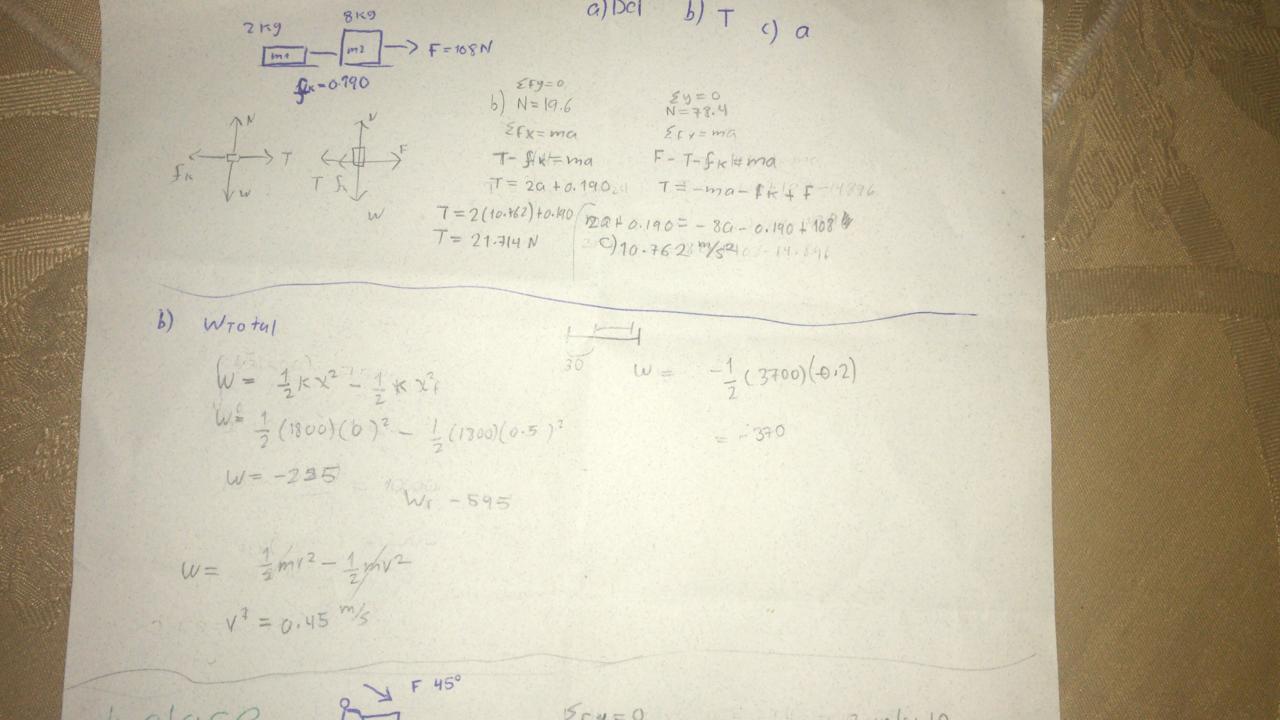 a) Dcl b) T c) a
2kg 8kg
m1 m2 F = 108N
fk = 0.190
N N
fk T T fk F
W W
ΣFy = 0
b) N = 19.6
ΣFx = ma
T - fk = ma
T = 2a + 0.190
T = 2(10.762) + 0.190
T = 21.714 N
Σy = 0
N = 78.4
ΣFx = ma
F - T - fk = ma
T = -ma - fk + F
2a + 0.190 = - 8a - 0.190 + 108
c) 10.762 m/s²
b) WTotal
W = 1/2 K x² - 1/2 K x²f
W = 1/2 (1800)(0)² - 1/2 (1800)(0.5)²
W = -225
WT -595
30
W = -1/2 (3700)(-0.2)
= -370
W = 1/2 mv² - 1/2 mv²
v² = 0.45 m/s
F 45°
ΣFy = 0